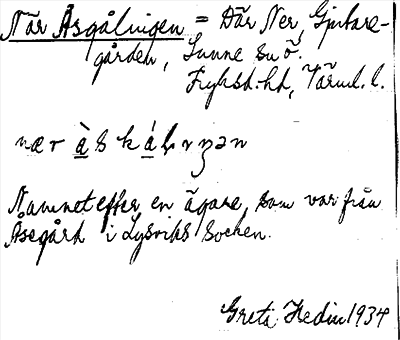 När Åsgålingen = Där Ner, Gjutare-
gården, Sunne sn ö.
Fryksd. hd, Värml. l.
nær à s k á l ı ŋ ə n
Namnet efter en ägare, som var från
Åsegård i Lysviks socken.
Greta Hedin 1934